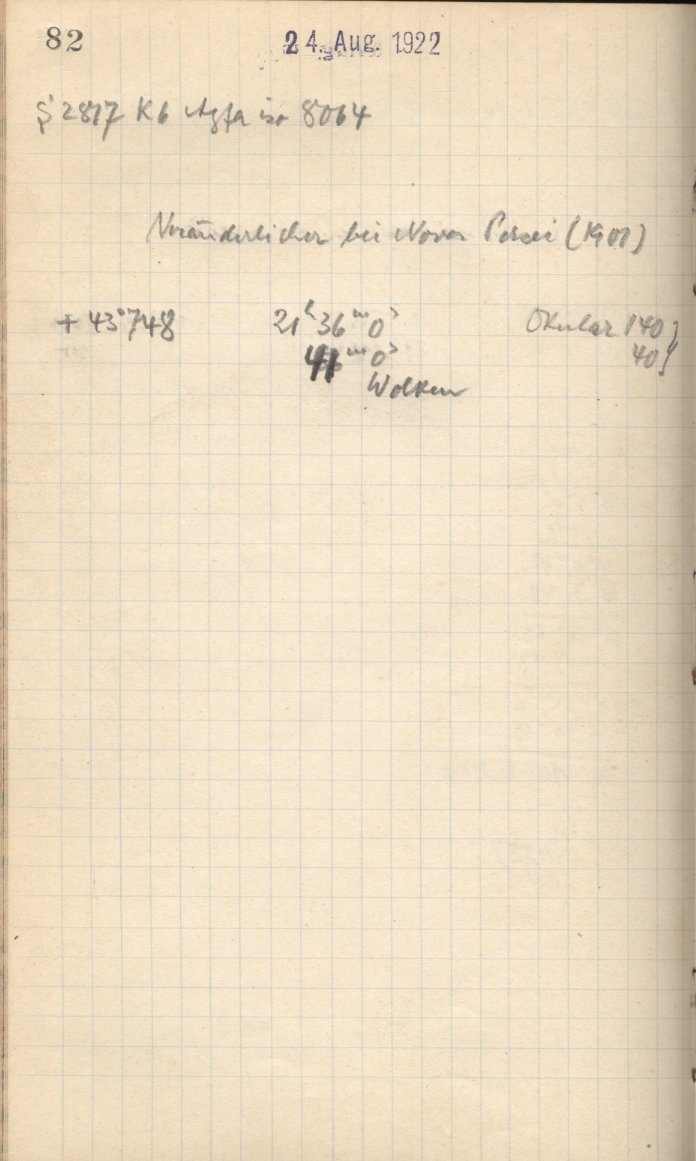 82
24. Aug. 1922
S 2817 K6 Agfa iso 8064
Veränderlicher bei Nova Persei (1901)
+ 43°748 21ʰ 36ᵐ 0ˢ Okular 140 }
41ᵐ 0ˢ 40 }
Wolken